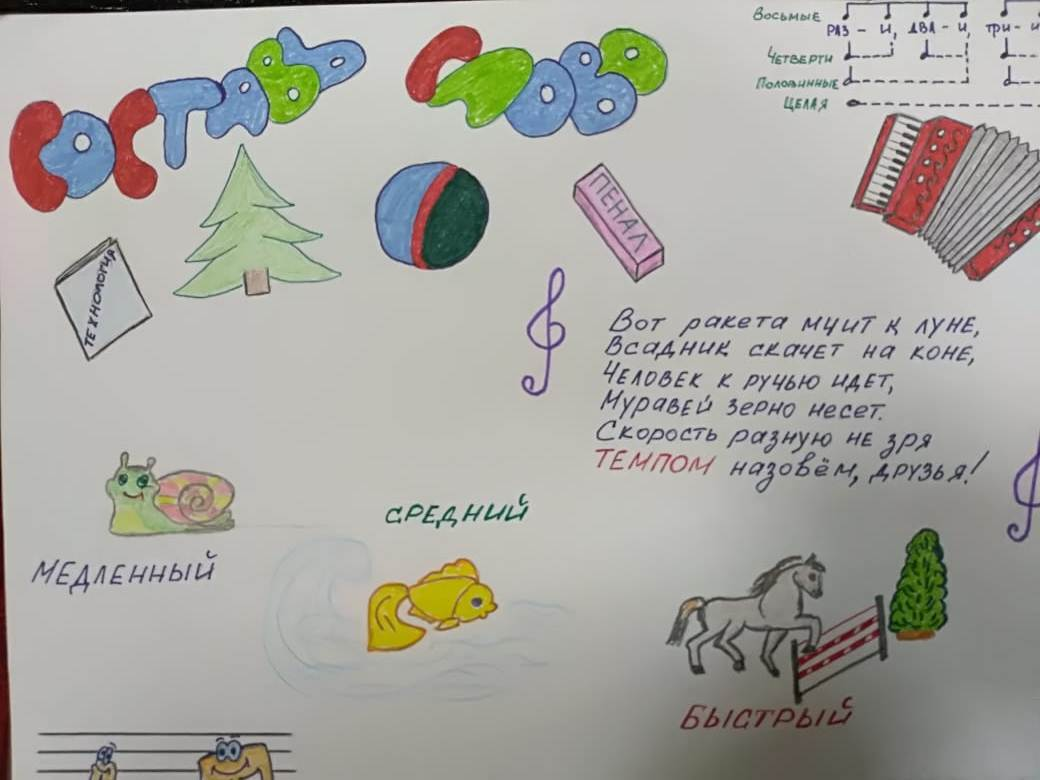 СОСТАВЬ СЛОВО
ВОСЬМЫЕ
РАЗ - И, ДВА - И, ТРИ - И
ЧЕТВЕРТИ
ПОЛОВИННЫЕ
ЦЕЛАЯ
ТЕХНОЛОГИЯ
ПЕНАЛ
Вот ракета мчит к луне,
Всадник скачет на коне,
Человек к ручью идет,
Муравей зерно несет.
Скорость разную не зря
ТЕМПОМ назовём, друзья!
МЕДЛЕННЫЙ
СРЕДНИЙ
БЫСТРЫЙ